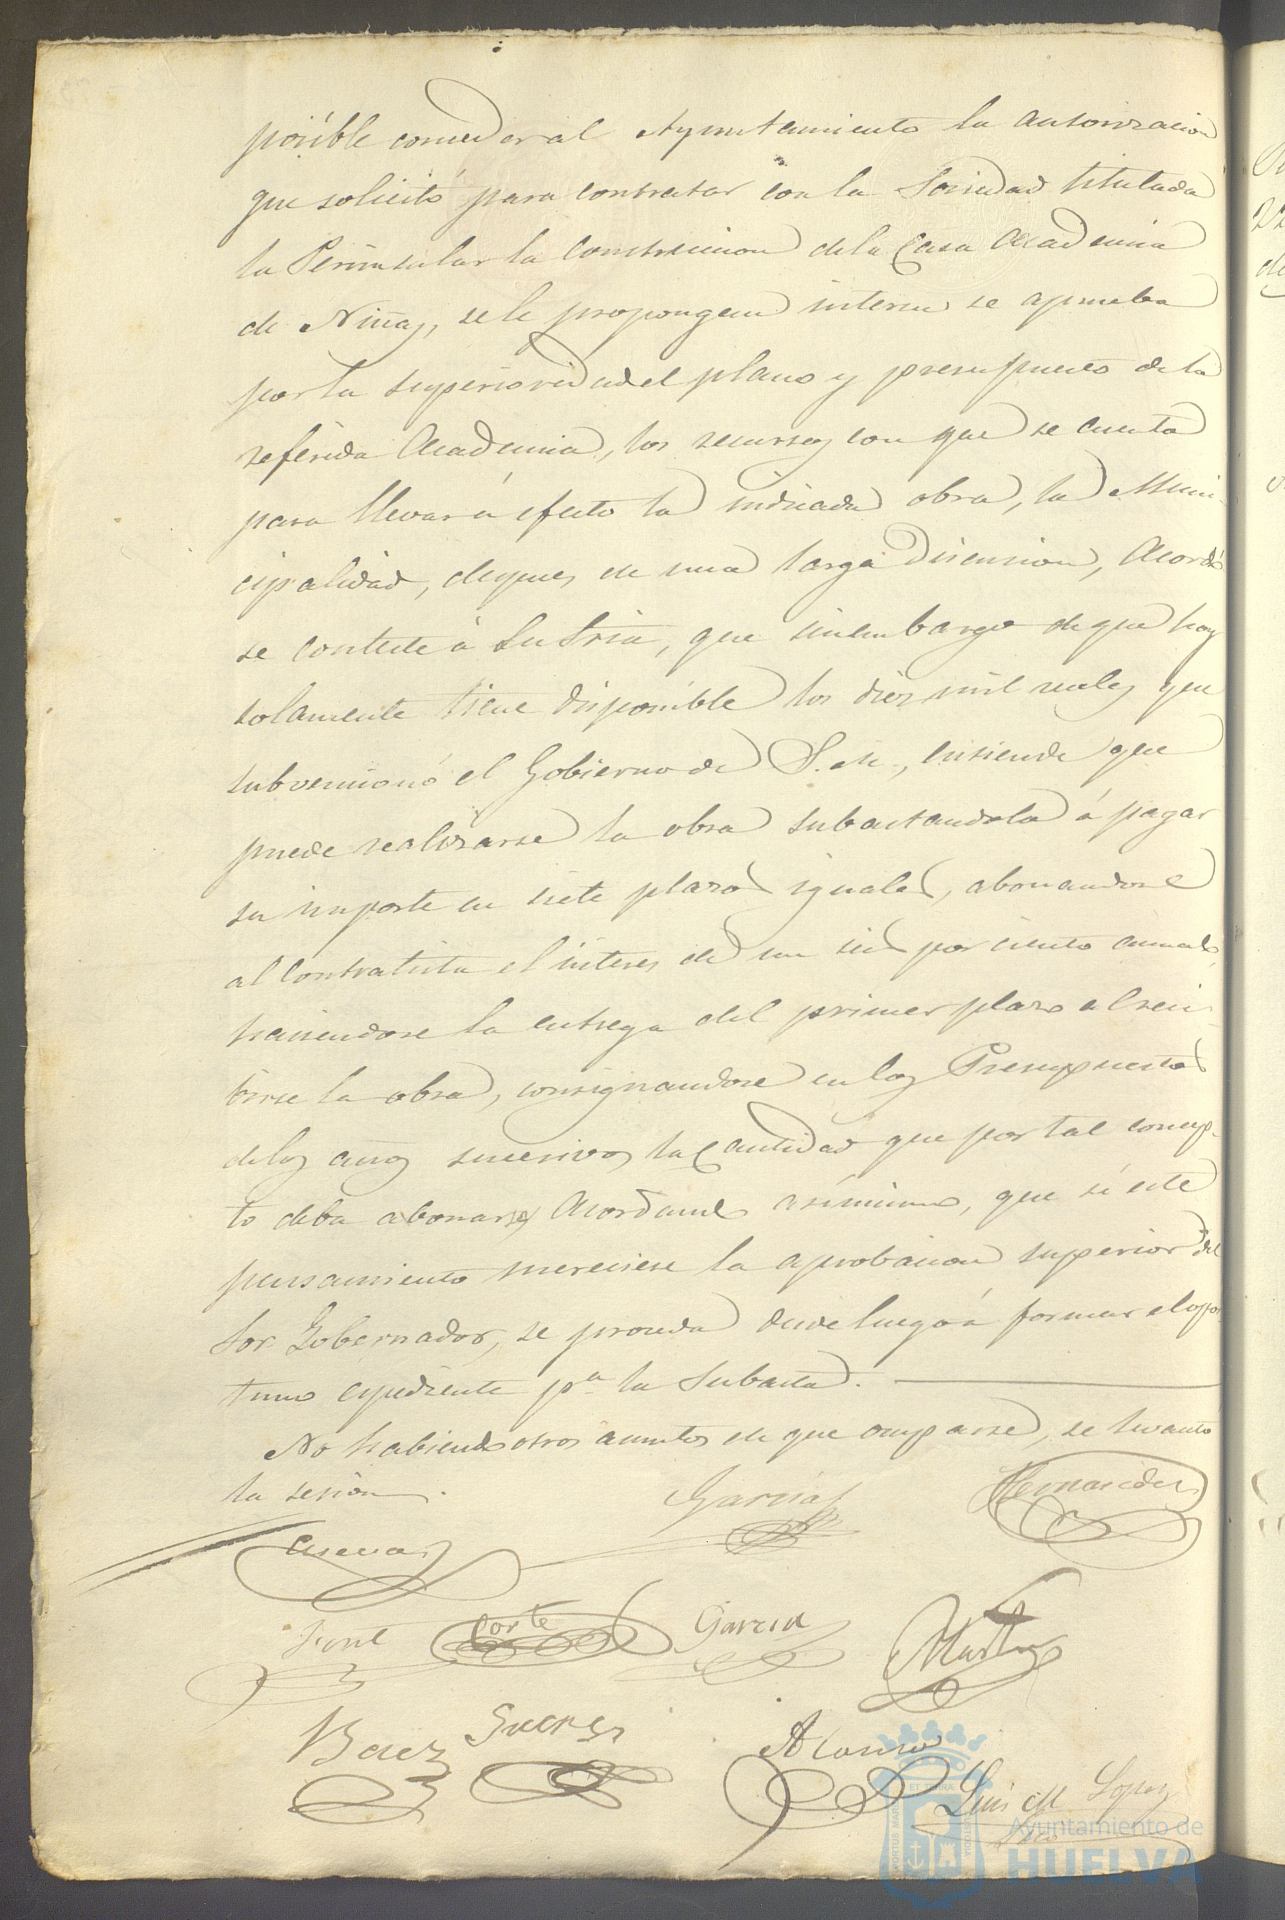 posible conceder al Ayuntamiento la autorizacion
que solicitó para contratar con la Sociedad titulada
la Peninsular la construccion de la Casa Academia
de Niñas, se le propongan interin se aprueba
por la superioridad el plano y presupuesto de la
referida Academia, los recursos con que se cuenta
para llevar á efecto la indicada obra, la Muni-
cipalidad, despues de una larga discusion, Acordó
se conteste á Su Sria, que sin embargo de que hoy
solamente tiene disponible los diez mil reales que
subvencionó el Gobierno de S. M., entiende que
puede realizarse la obra subastandola á pagar
su importe en siete plazos iguales, abonandose
al Contratista el interes de un seis por ciento anual,
haciendose la entrega del primer plazo al reci-
birse la obra, consignandose en los Presupuestos
de los años sucesivos la Cantidad que por tal concep-
to deba abonarse, Acordando asimismo, que si este
pensamiento mereciese la aprobacion superior del
Sor. Gobernador, se proceda desde luego á formar el opor-
tuno espediente pa. la Subasta.
No habiendo otros asuntos de que ocuparse, se levantó
la sesion.
Garcia
Hernandez
Cuevas
Font
Corte
Garcia
Martin
Baez
Suarez
Alonso
Luis M Lopez
Srio
PORTUS MARIS ET TERRAE CUSTODIA
Ayuntamiento de
HUELVA